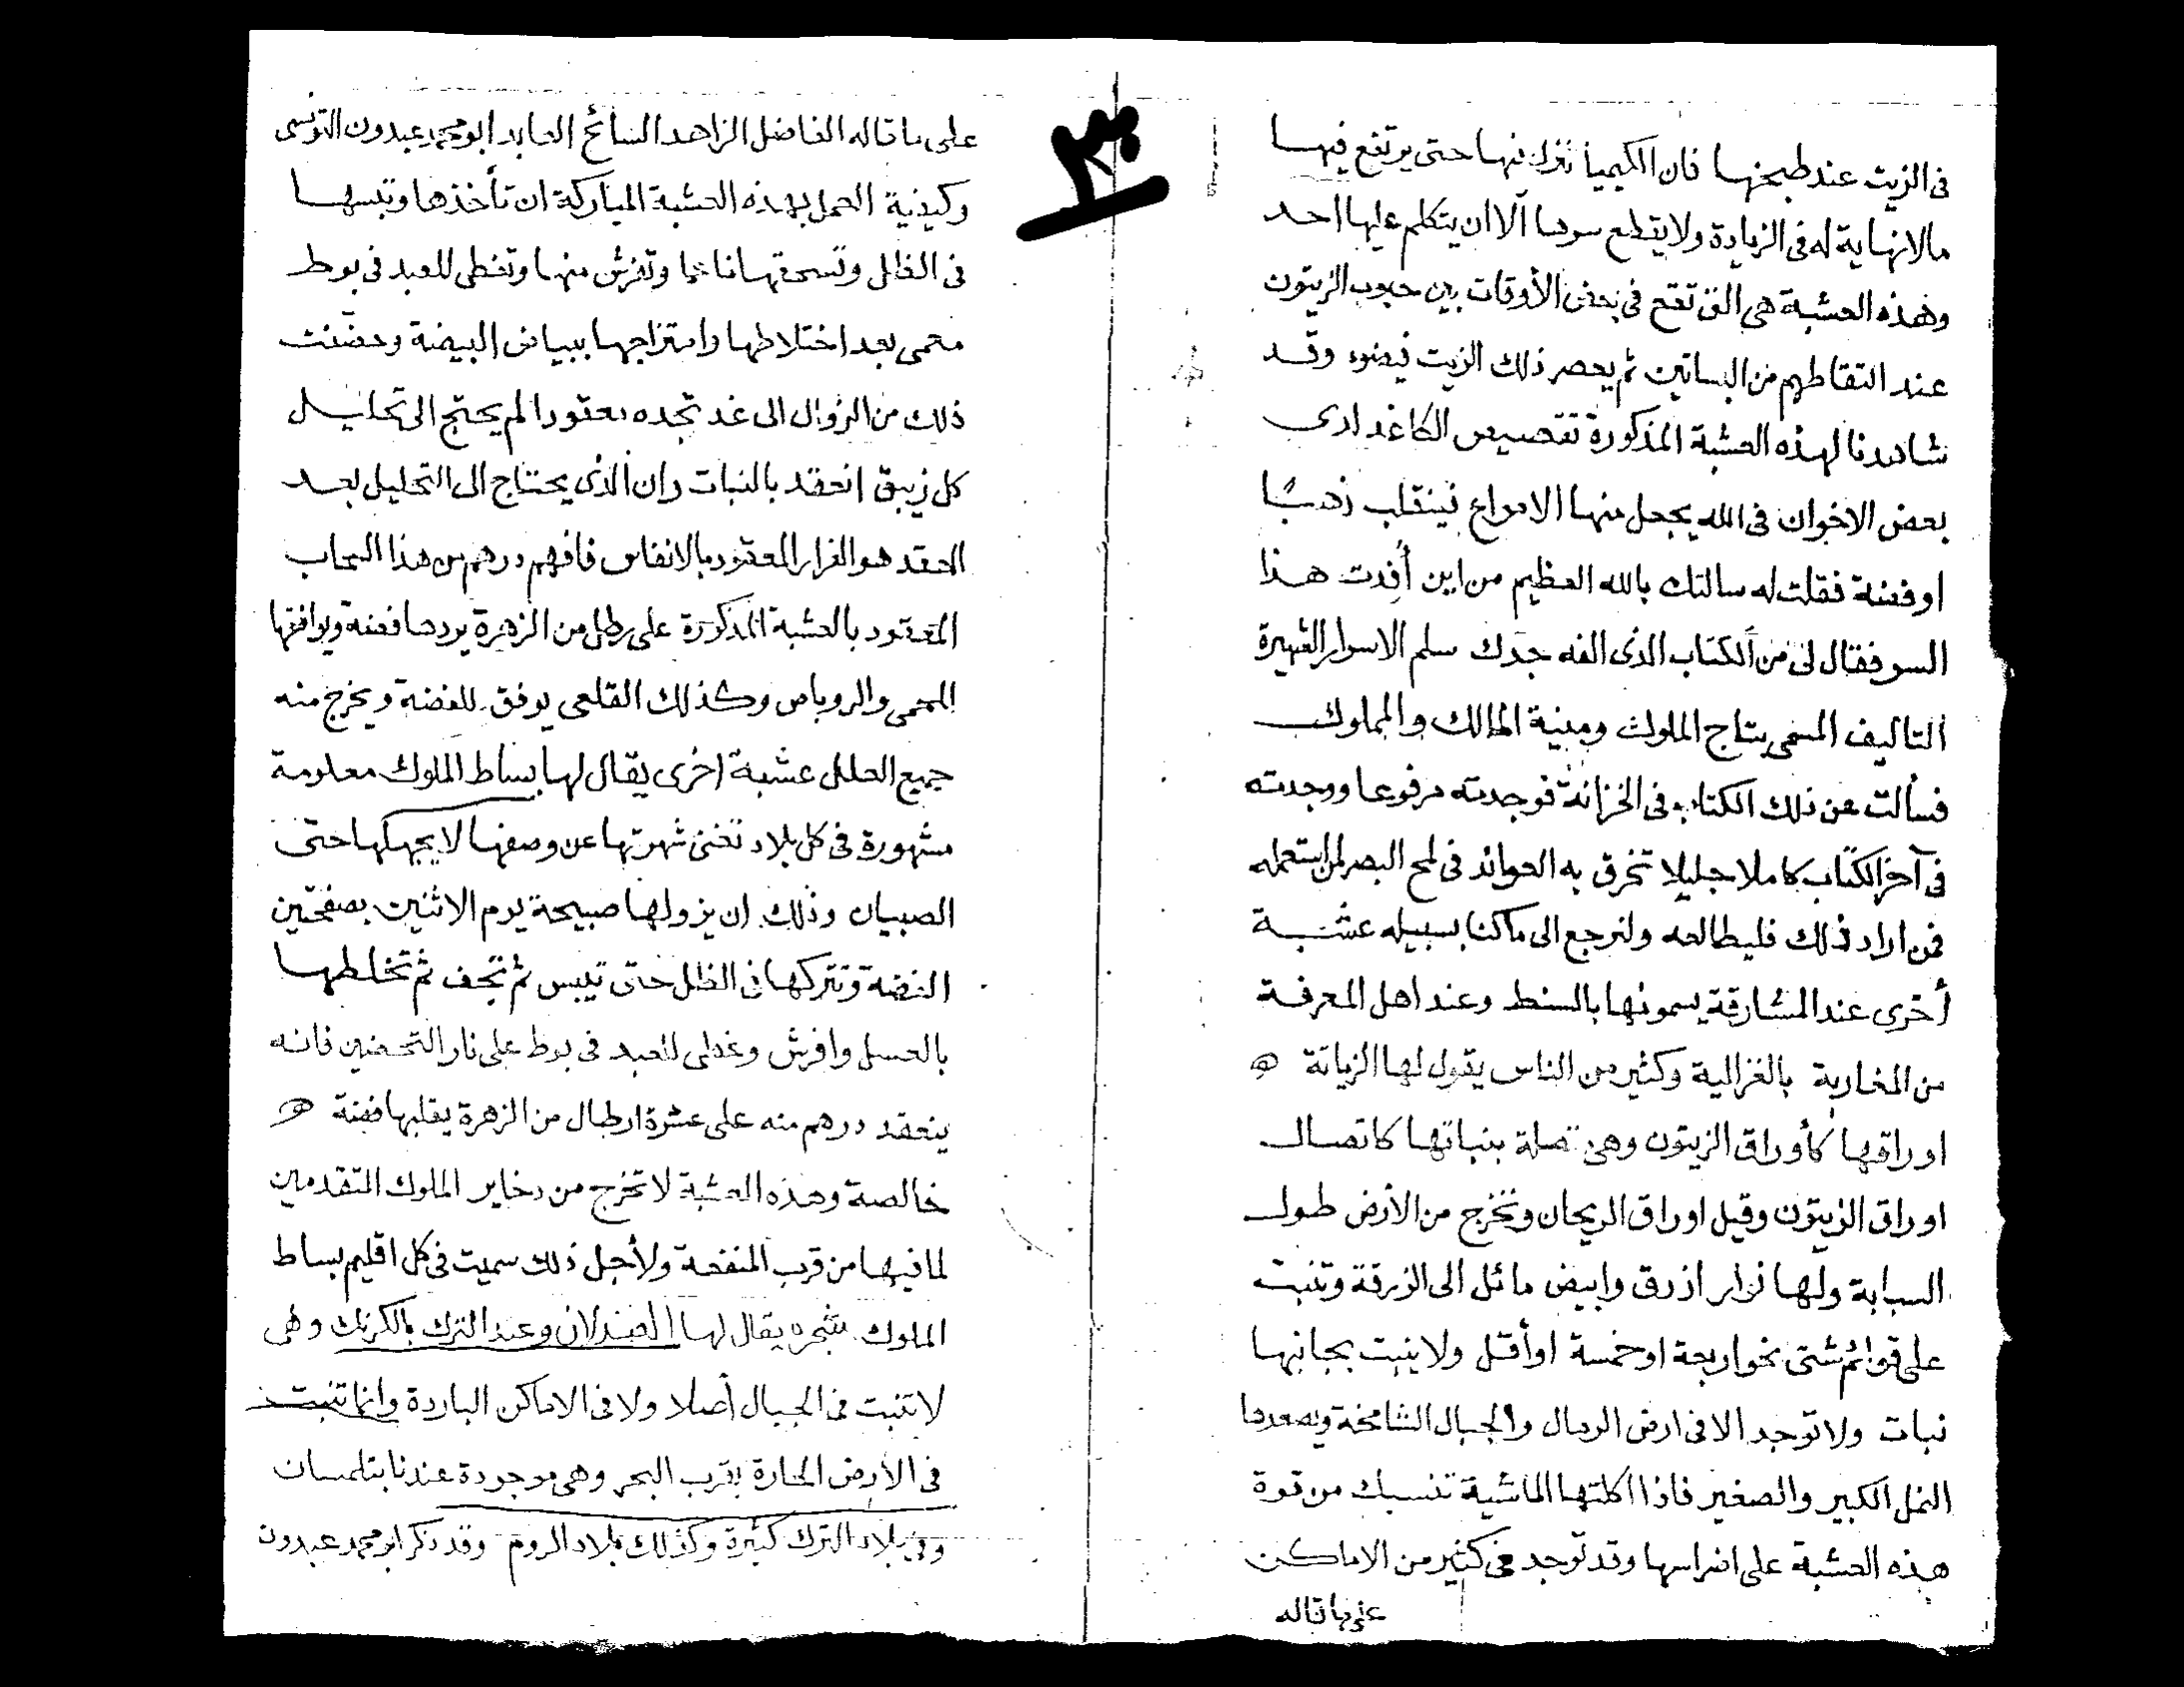 في الزيت عند طبخها فان الكيميا تترك فيها حتى يرتفع فيها
مالانهاية له في الزيادة ولا يقطع سرها الا ان يتكلم عليها احد
وهذه العشبة هي التي تقع في بعض الأوقات بين حبوب الزيتون
عند التقاطهم من البساتين ثم يعصر ذلك الزيت فيضوء وقد
شاهدنا لهذه العشبة المذكورة تقصيص الكاغد ارى
بعض الاخوان في الله يجعل منها الامواج فينقلب ذهبًا
او فضة فقلت له سالتك بالله العظيم من اين أفدت هذا
السر فقال لى من الكتاب الذى الفه جدك سلم الاسرار الشهيرة
التاليف المسمى بتاج الملوك ومنية المالك والمملوك
فسألت عن ذلك الكتاب في الخزانة فوجدته مرفوعا ووجدته
في آخر الكتاب كاملا جليلا تخرق به العوائد في لمح البصر لمن استعمله
فمن اراد ذلك فليطالعه ولنرجع الى ماكنا بسبيله عشبة
أخرى عند المشارقة يسمونها بالسنط وعند اهل المعرفة
من المغاربة بالغزالية وكثير من الناس يقول لها الزياتة ھ
اوراقها كأوراق الزيتون وهي بنباتها كاتصال
اوراق الزيتون وقيل اوراق الريحان وتخرج من الأرض طول
السبابة ولها نوار ازرق وابيض مائل الى الزرقة وتنبت
على قوائم شتى نحو اربعة او خمسة او أقل ولا ينبت بجانبها
نبات ولا توجد الا في ارض الرمال والجبال الشامخة ويصعدها
النمل الكبير والصغير فاذا اكلتها الماشية تنسبك من قوة
هذه العشبة على اضراسها وقد توجد في كثير من الاماكن
على ما قاله
٣٠
على ما قاله الفاضل الزاهد السائح العابد ابو محمد عبدون التونسى
وكيفية العمل بهذه العشبة المباركة ان تأخذها وتيبسها
في الظل وتسحقها ناعما وتفرش منها وتغطى للعبد في بوط
معمى بعد اختلاطها وامتزاجها ببياض البيضة وحضنت
ذلك من الزوال الى غد تجده معقودا لم يحتج الى تحليل
كل زيبق انعقد بالنبات وان الذى يحتاج الى التحليل بعد
العقد هو الفرار المعقود بالانفاس فافهم درهم من هذا السحاب
المعقود بالعشبة المذكورة على رطل من الزهرة يردها فضة ويوافقها
المعمى والروباص وكذلك القلعى يوفق للفضة ويخرج منه
جميع العلل عشبة اخرى يقال لها بساط الملوك معلومة
مشهورة في كل بلاد تغنى شهرتها عن وصفها لا يجهلها حتى
الصبيان وذلك ان يزولها صبيحة يوم الاثنين بصفحتين
الفضة وتتركها في الظل حتى تيبس ثم تجف ثم تخلطها
بالعسل وافرش وغطى للعبد في بوط على نار التحضين فانه
ينعقد درهم منه على عشرة ارطال من الزهرة يقلبها فضة ھ
خالصة وهذه العشبة لا تخرج من دخاير الملوك المتقدمين
لما فيها من قرب المنفعة ولأجل ذلك سميت في كل اقليم بساط
الملوك شجره يقال لها الصندلان وعند الترك بالكرنك وهي
لا تنبت في الجبال أصلا ولا في الاماكن الباردة وانما تنبت
في الأرض الحارة بقرب البحر وهي موجودة عندنا بتلمسان
وفي بلاد الترك كثيرة وكذلك بلاد الروم وقد ذكر ابو محمد عبدون